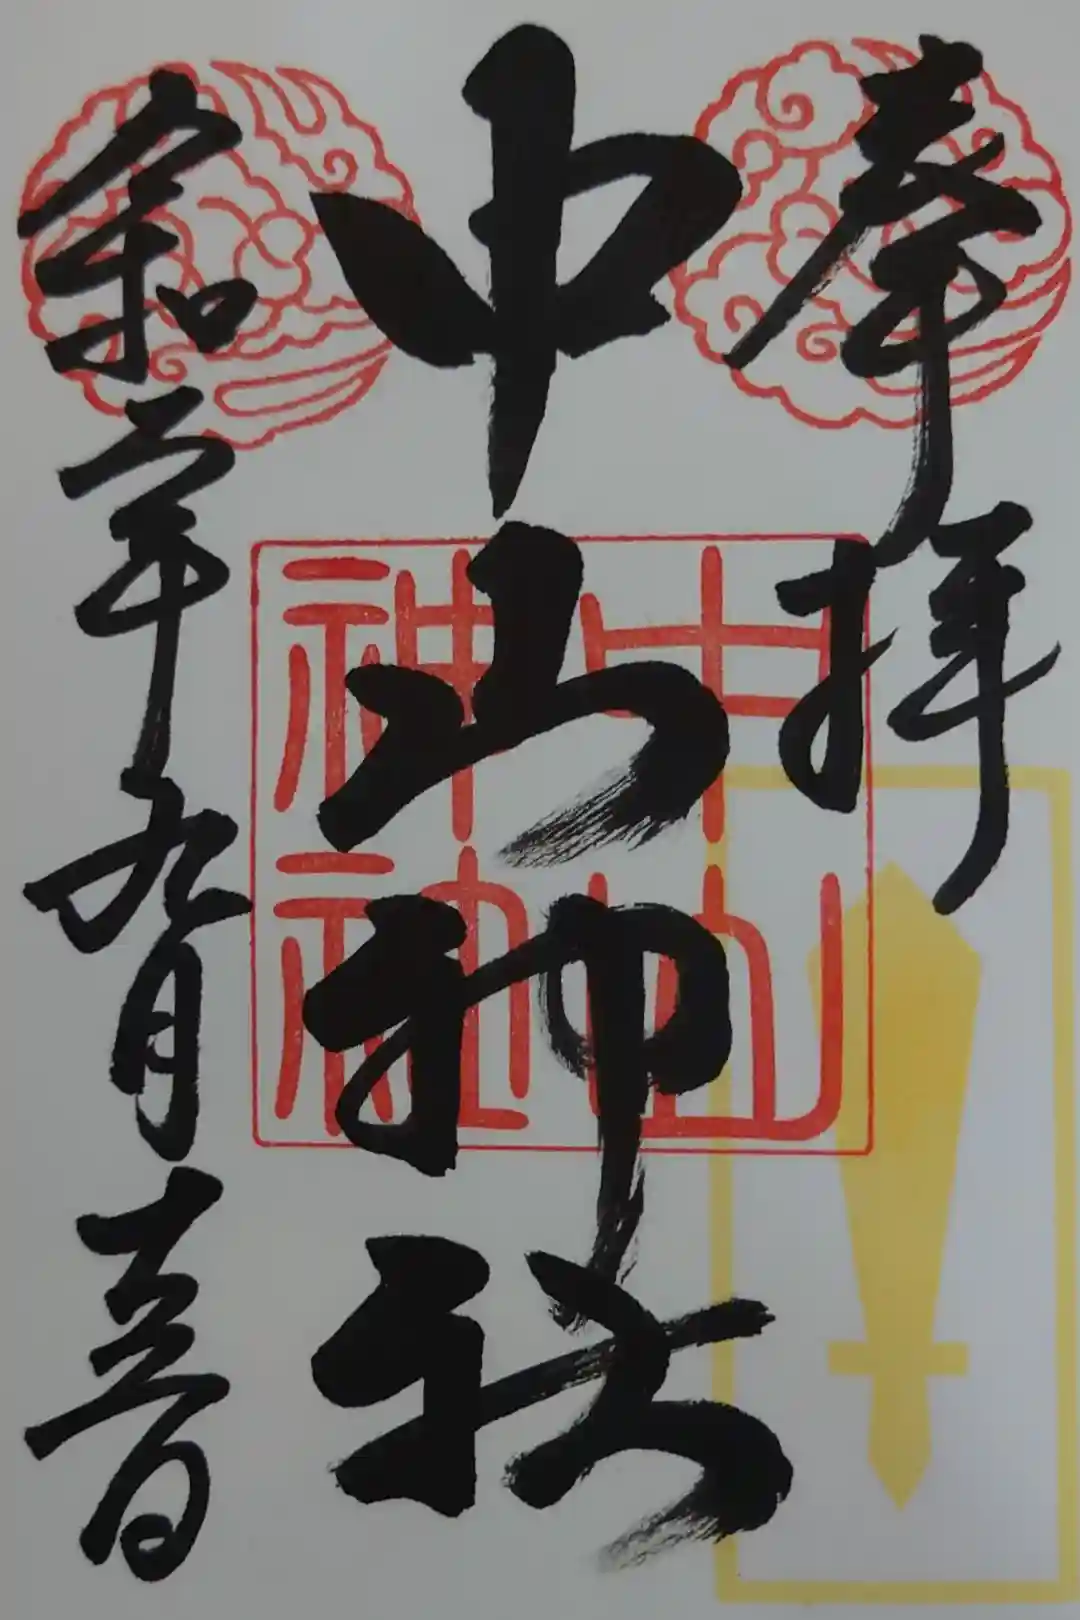 奉拝
中山神社
中山
神社
令和 年九月十 日